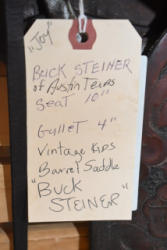 "Joy"
BUCK STEINER
of Austin Texas
Seat 10"
Gullet 4"
Vintage Kids
Barrel Saddle
"BUCK
STEINER"